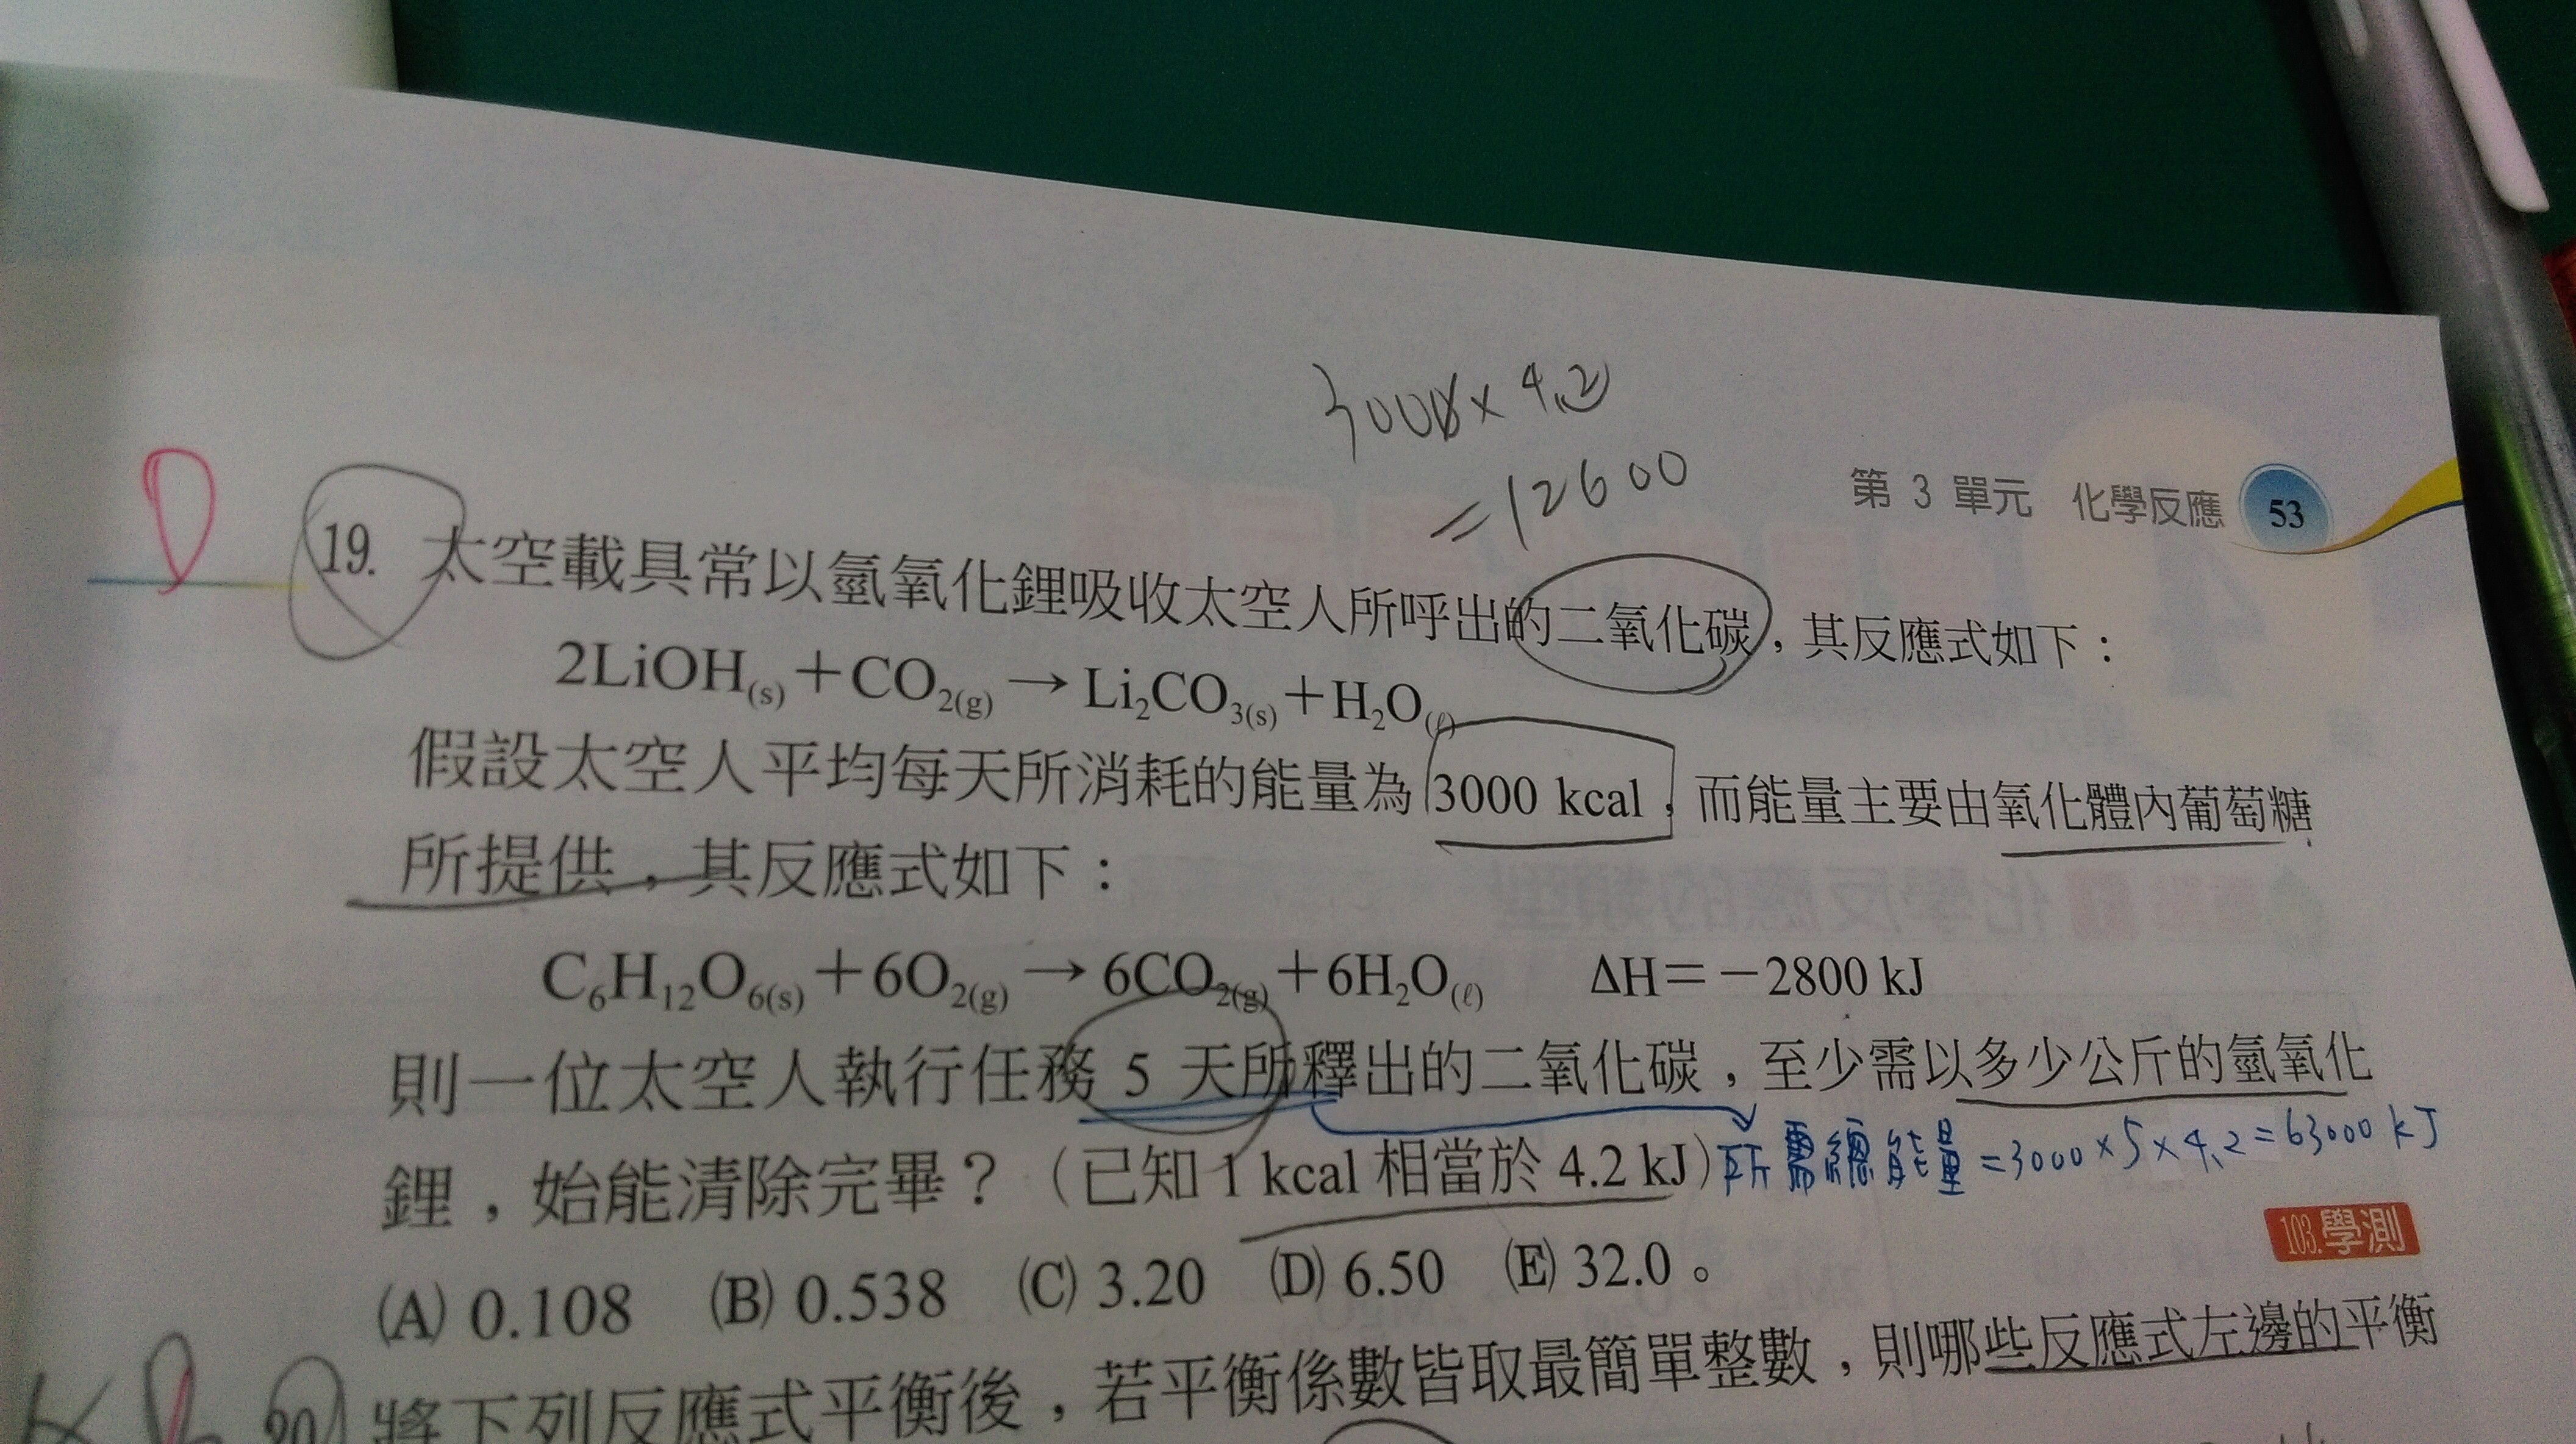 3000×4.2
=12600
第 3 單元 化學反應 53
19. 太空載具常以氫氧化鋰吸收太空人所呼出的二氧化碳，其反應式如下：
2LiOH(s)＋CO2(g)→Li2CO3(s)＋H2O(ℓ)
假設太空人平均每天所消耗的能量為 3000 kcal，而能量主要由氧化體內葡萄糖
所提供，其反應式如下：
C6H12O6(s)＋6O2(g)→6CO2(g)＋6H2O(ℓ) ΔH＝－2800 kJ
則一位太空人執行任務 5 天所釋出的二氧化碳，至少需以多少公斤的氫氧化
鋰，始能清除完畢？（已知 1 kcal 相當於 4.2 kJ）所需總能量=3000×5×4.2=63000 kJ
103.學測
(A) 0.108 (B) 0.538 (C) 3.20 (D) 6.50 (E) 32.0。
20 將下列反應式平衡後，若平衡係數皆取最簡單整數，則哪些反應式左邊的平衡